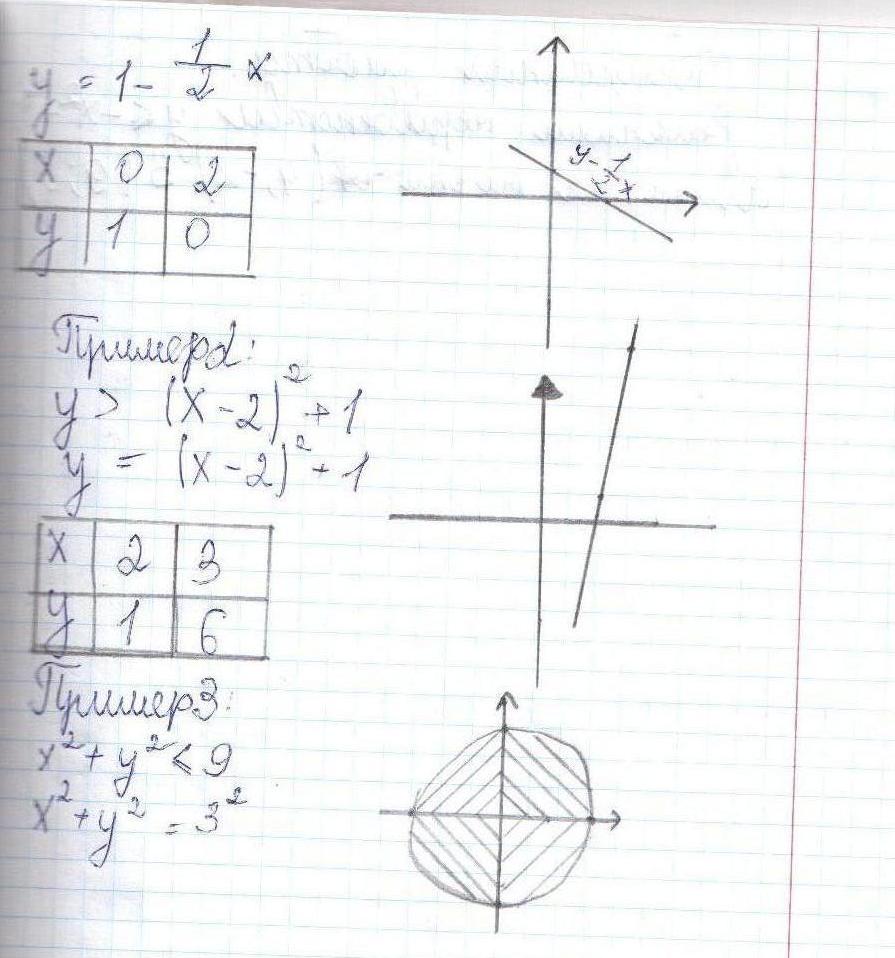 y = 1 - 1/2 x
x 0 2
y 1 0
y - 1/2 x
Пример 2:
y > (x - 2)² + 1
y = (x - 2)² + 1
x 2 3
y 1 6
Пример 3:
x² + y² ≤ 9
x² + y² = 3²